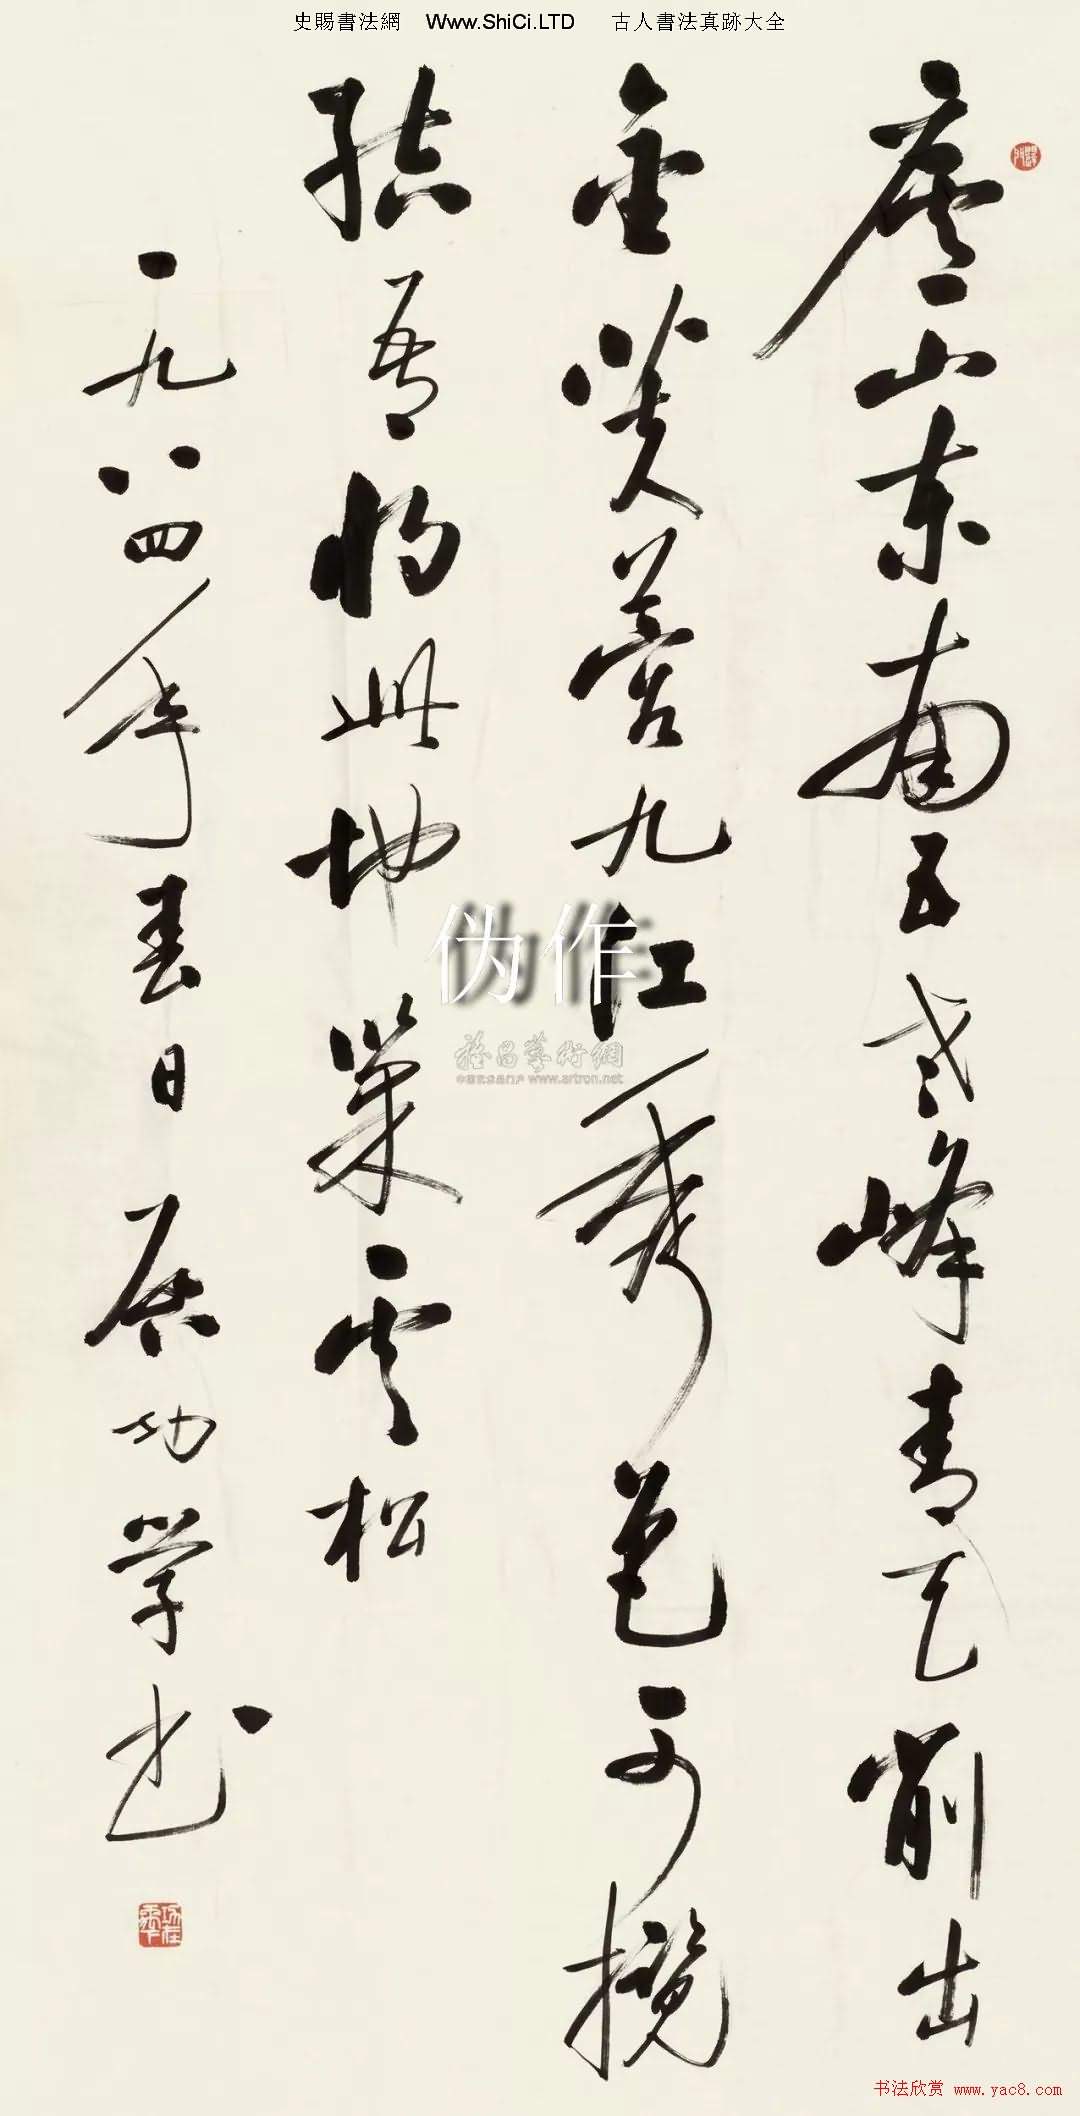 史賜書法網 Www.ShiCi.LTD 古人書法真跡大全
廬山東南五老峰青天削出
金芙蓉九江秀色可攬
結吾將此地巢雲松
一九八四年春日啟功學書
伪作
www.artron.net
书法欣赏 www.yac8.com